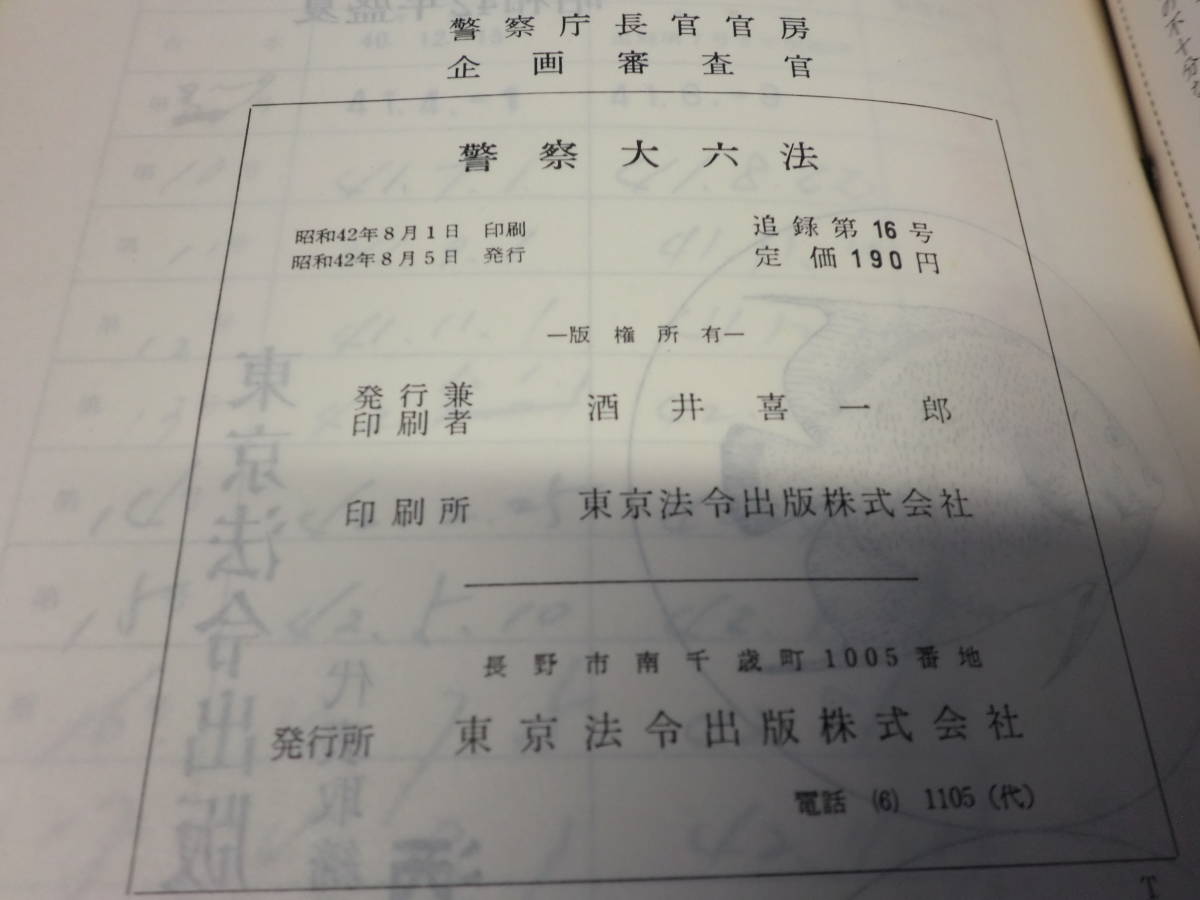 警察庁長官官房
企画審査官
警察大六法
昭和42年8月1日 印刷
昭和42年8月5日 発行
追録第16号
定価190円
―版権所有―
発行兼
印刷者
酒井喜一郎
印刷所 東京法令出版株式会社
長野市南千歳町1005番地
発行所 東京法令出版株式会社
電話 (6) 1105 (代)
の不十分な